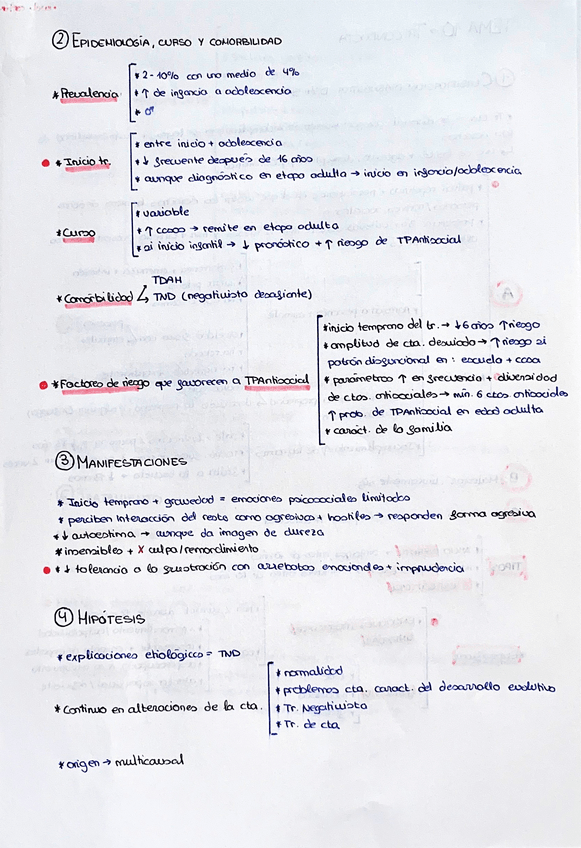 ② EPIDEMIOLOGÍA, CURSO Y COMORBILIDAD
* Prevalencia
* 2-10% con una media de 4%
* ↑ de infancia a adolescencia
* ♂
* Inicio tr.
* entre inicio + adolescencia
* ↓ frecuente después de 16 años
* aunque diagnóstico en etapa adulta → inicio en infancia/adolescencia
* Curso
* variable
* ↑ casos → remite en etapa adulta
* si inicio infantil → ↓ pronóstico + ↑ riesgo de TPAntisocial
* Comorbilidad
TDAH
TND (negativista desafiante)
* Factores de riesgo que favorecen a TPAntisocial
* inicio temprano del tr. → ↓ 6 años ↑ riesgo
* amplitud de cta. desviada → ↑ riesgo si
patrón disfuncional en: escuela + casa
* parámetros ↑ en frecuencia + diversidad
de ctas. antisociales → mín. 6 ctas antisociales
↑ prob. de TPAntisocial en edad adulta
* caract. de la familia
③ MANIFESTACIONES
* Inicio temprano + gravedad = emociones psicosociales limitadas
* perciben interacción del resto como agresivas + hostiles → responden forma agresiva
* ↓ autoestima → aunque da imagen de dureza
* insensibles + X culpa/remordimiento
* ↓ tolerancia a la frustración con arrebatos emocionales + imprudencia
④ HIPÓTESIS
* explicaciones etiológicas = TND
* Continuo en alteraciones de la cta.
* normalidad
* problemas cta. caract. del desarrollo evolutivo
* Tr. Negativista
* Tr. de cta
* origen → multicausal